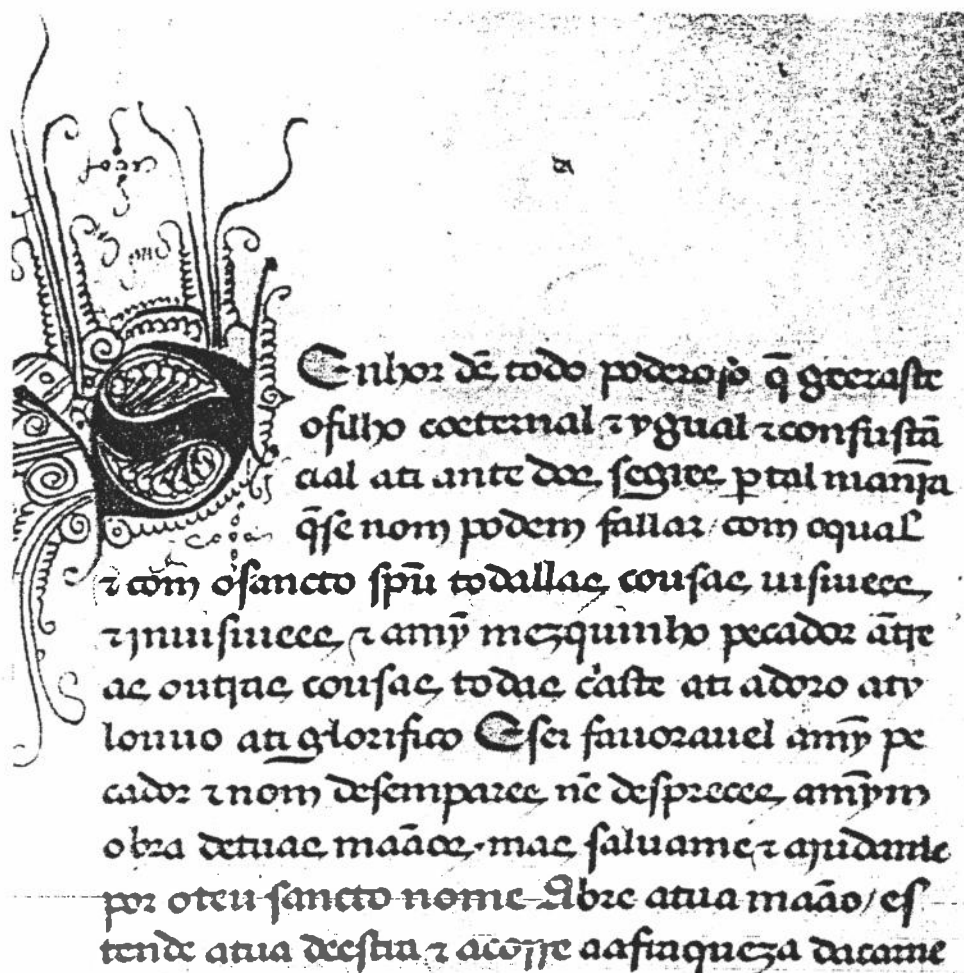 Senhor dē todo poderoso q̄ geeraste
ofilho coeternal ⁊ ygual ⁊ consustā
cial ati ante dos segres ꝑ tal man̄ra
q̄se nom podem fallar / com oqual
⁊ com o sancto spū todallas cousas uisiuees
⁊ jnuisiuees ⁊ amȳ mezquinho pecador ātre
as outras cousas todas c̓aste ati adoro aty
louuo ati glorifico E sei fauorauel amȳ pe
cador ⁊ nom desempares nē despreces amȳm
obra detuas maãos · mas saluame ⁊ ajudame
por oteu sancto nome Abre atua maão / es
tende atua deestra ⁊ acorre aafraqueza dacarne